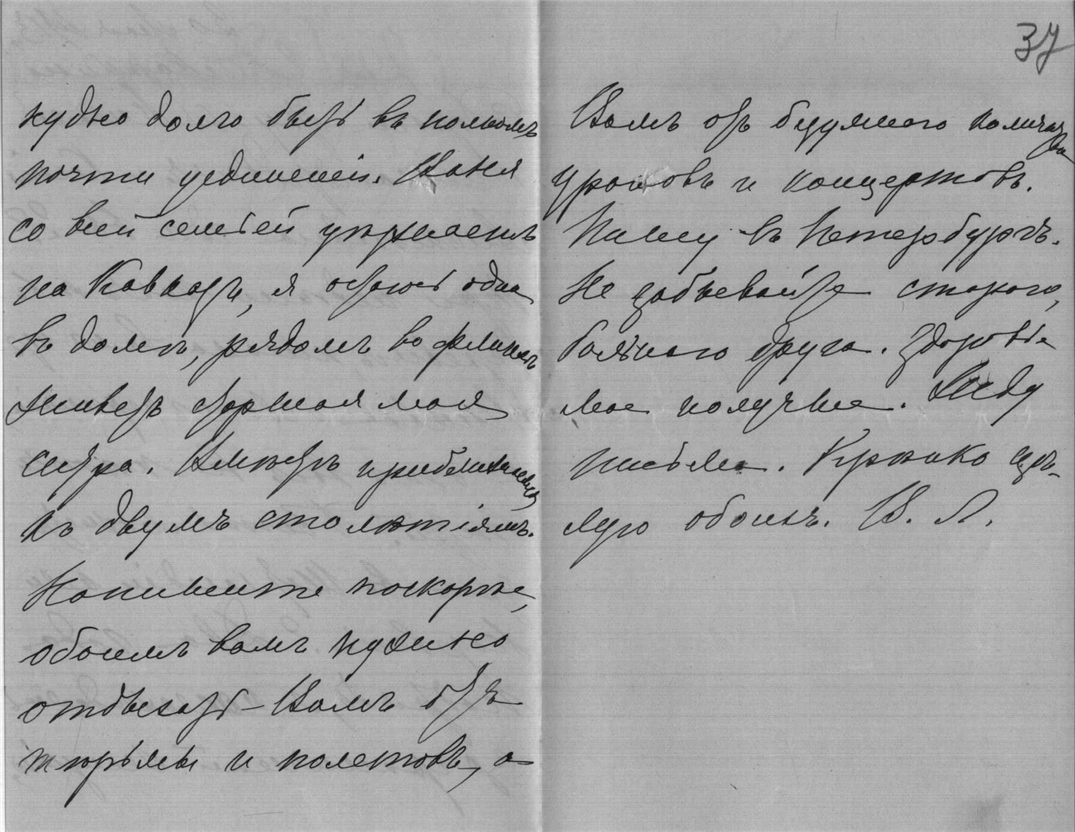 37
нужно долго быть въ полномъ
почти уединеніи. Ваня
со всей семьей
на Кавказъ, я остаюсь одна
въ домѣ, рядомъ во флигелѣ
живетъ старшая моя
сестра. Вмѣстѣ
къ двумъ столѣтіямъ.
Напишите поскорѣе,
обоимъ вамъ нужно
отдыхать Вамъ отъ
тюрьмы и полетовъ, а
Вамъ отъ количества
уроковъ и концертовъ.
Пишу въ Петербургъ.
Не забывайте стараго,
больного друга. Здоровье
мое получше. Жду
письма. Крѣпко цѣ-
лую обоихъ. В. Л.